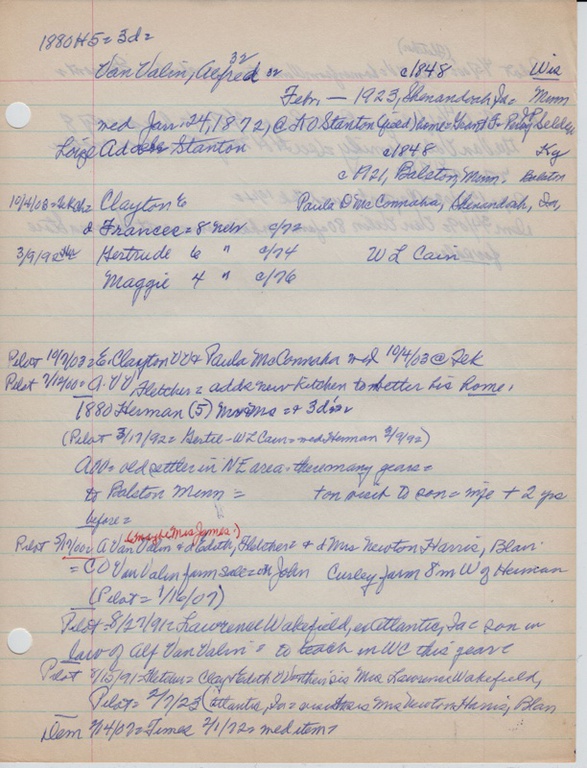 1880 H5 = 3d =
Van Valin, Alfred 32 32 c1848 Wis
Febr — 1923, Shenandoah, Ia = Minn
med Jan. 24, 1872, @ A O Stanton (said) home = Grant F =
Loize Ad Stanton c1848 Ky
c1921, Balston, Minn. Balston
10/4/03 = Clayton E Paula D McConnaha, Shenandoah, Ia,
& Frances = 8 Nebr c/72
3/9/92 Gertrude 6 " c/74 W L Cain
Maggie 4 " c/76
Pilot 10/7/03 = E. Clayton VV & Paula McConnaha med 10/4/03 @ Tek
Pilot 7/12/00 = A. VV Fletcher = adds new kitchen to better his home.
1880 Herman (5) Mr & Mrs = & 3d's =
(Pilot 3/17/92 = Gertie - W L Cain = med Herman 3/9/92)
AVV = old settler in NE area = there many years =
to Balston Minn = + on visit to son = wife + 2 yrs
before =
(maybe Mrs James.)
Pilot 5/17/00 = A Van Valin & d Edith, Fletcher = & d Mrs Newton Harris, Blair
= C O Van Valin farm sale = on John Curley farm 8 m W of Herman
(Pilot = 1/16/07)
Pilot = 8/27/91 = Lawrence Wakefield, ex Atlantic, Ia = son in
law of Alf Van Valin = to teach in WC this year =
Pilot /15/91 = Fletcher = Clay & Edith VV = their sis Mrs Lawrence Wakefield,
Pilot = 2/7/23 (Atlantic, Ia = sis Mrs Newton Harris, Blair
Dem 7/14/07 = Times 2/1/72 = med item =